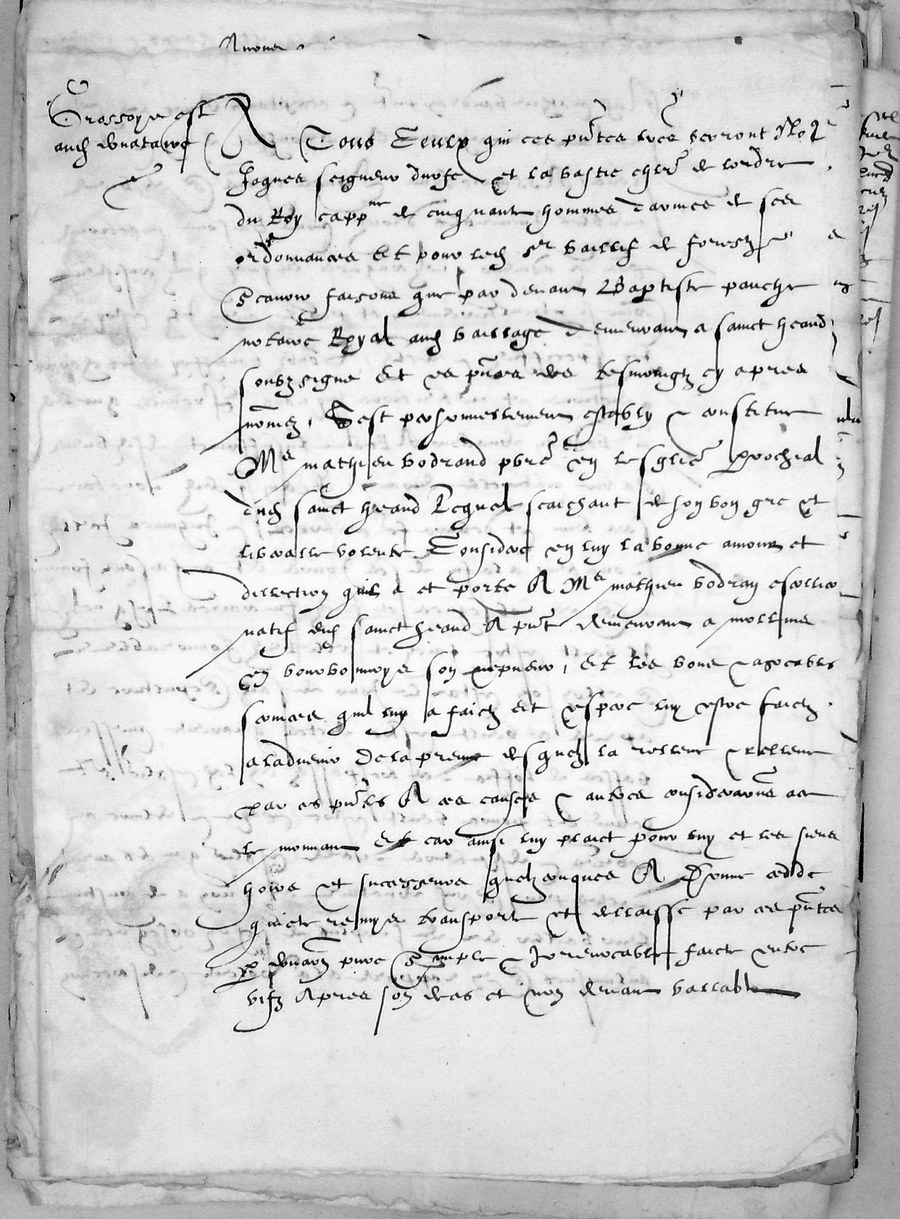 Grossoye est
aud donataire
A Tous Ceulx qui ces pntes lres verront Nous
Jaques seigneur durfe et la bastie chlr de lordre
du Roy cappne de cinquante hommes darmes de ses
ordonnances Et pour led sr baillif de forestz
Scavoir faisons que par devant Baptiste panche
notaire Royal aud bailliage demeurant a sainct heand
soubzsigne Et es pnces des tesmoingz cy apres
nommez, Sest personnellement estably & constitue
Me mathieu vodrand pbre en lesglise parochial
dud sainct heand Lequel saichant de son bon gre et
liberalle volente Considere en luy la bonne amour et
dillection quil a et porte A Me mathieu Vodran escollier
natif dud sainct heand A pnt demeurant a mollins
en bourbonnoys son nepveur, Et les bons & agreables
services quil luy a faictz Et espere luy estre faictz
a ladvenir De la preuve desquelz la relleve & relleve
par ces pntes A ces causes & autres considerations ad ce
le mouvant Et car ainsi luy plaict pour luy et les siens
hoirs et successeurs quelzconques A Donne cedde
quicte remys transporte et dellaisse par ces pntes
par donaon pure Simple & Irrevocable faicte entre
vifz Apres son deces et non devant vaillable